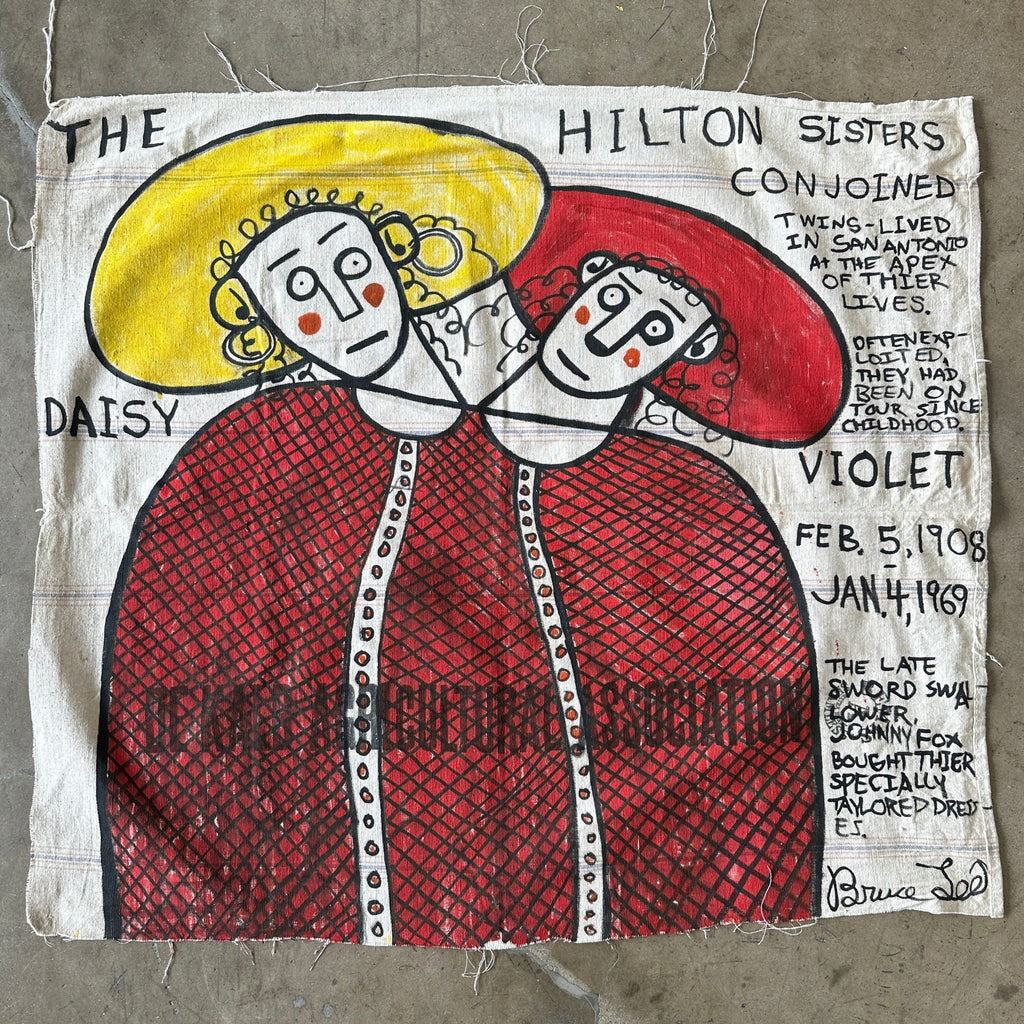 THE HILTON SISTERS
CONJOINED
TWINS-LIVED
IN SAN ANTONIO
At THE APEX
OF THIER
LIVES.
OFTEN EXP-
LOITED,
THEY HAD
BEEN ON
TOUR SINCE
CHILDHOOD.
DAISY
VIOLET
FEB. 5, 1908
-
JAN. 4, 1969
THE LATE
SWORD SWAL-
LOWER,
JOHNNY FOX
BOUGHT THIER
SPECIALLY
TAYLORED DRESS-
ES.
ASSOCIATION
Bruce Lee